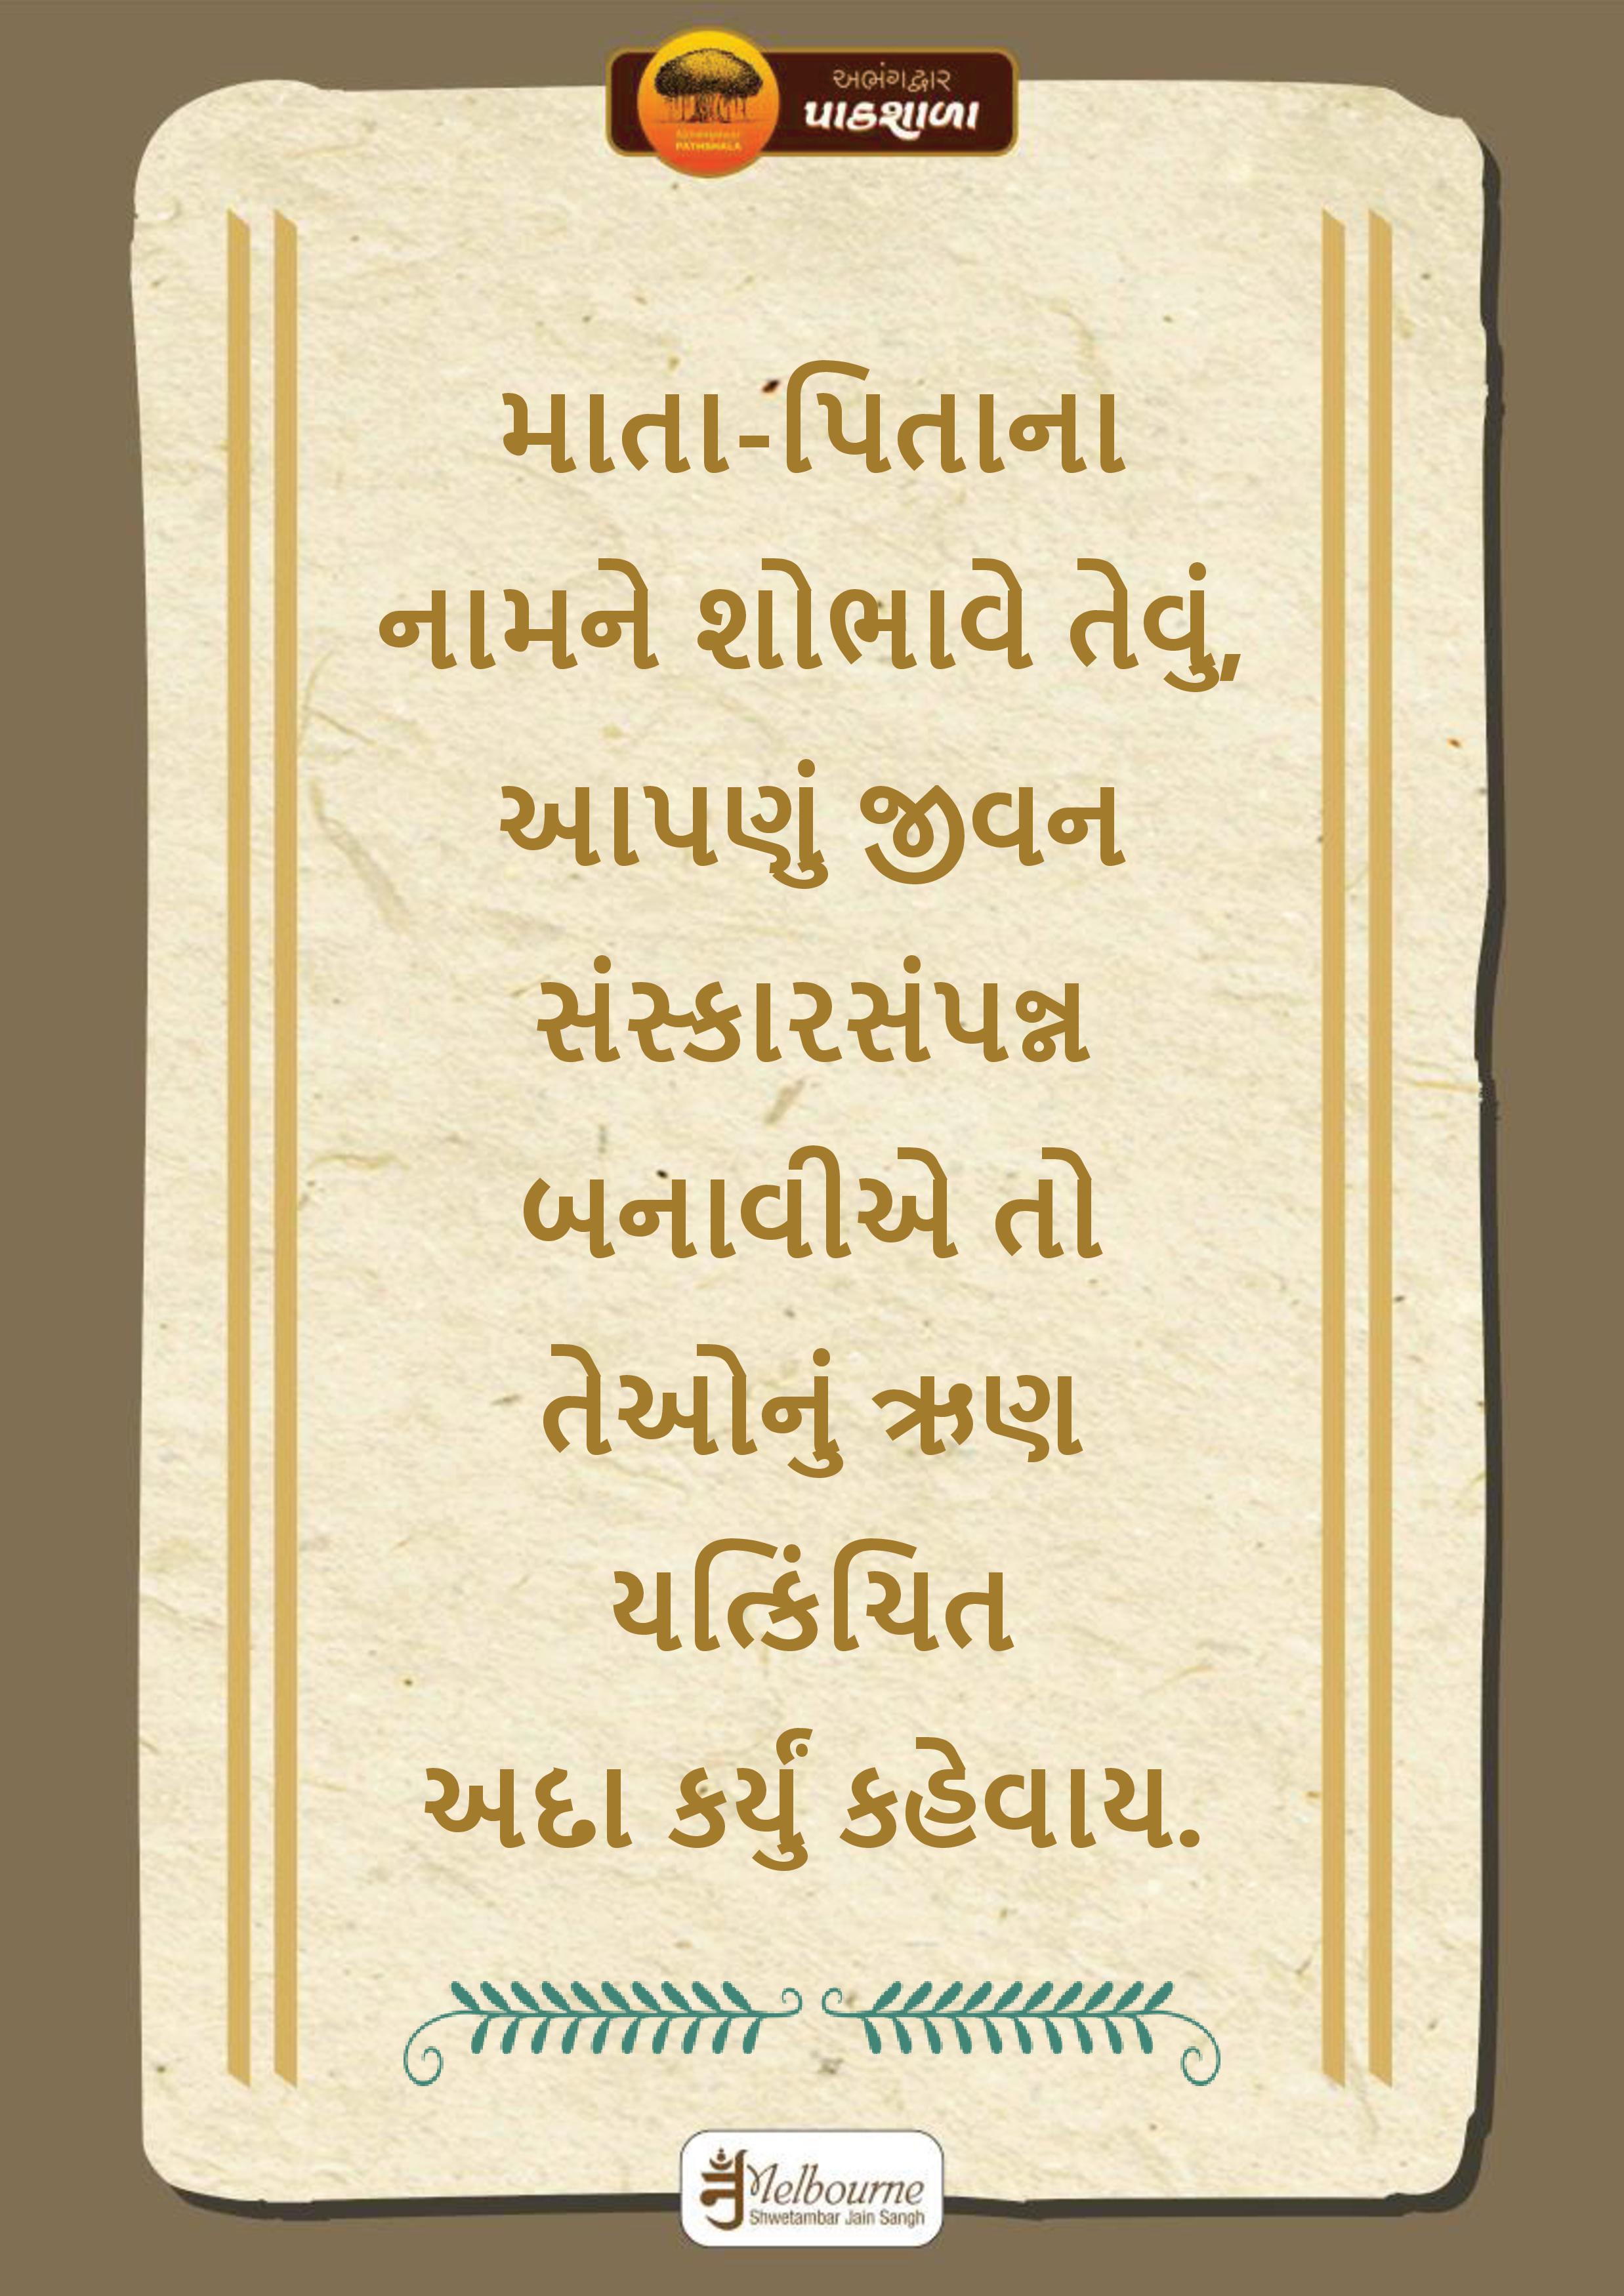 અભંગદ્વાર
પાઠશાળા
PATHSHALA
માતા-પિતાના
નામને શોભાવે તેવું,
આપણું જીવન
સંસ્કારસંપન્ન
બનાવીએ તો
તેઓનું ઋણ
યત્કિંચિત
અદા કર્યું કહેવાય.
Melbourne
Shwetambar Jain Sangh